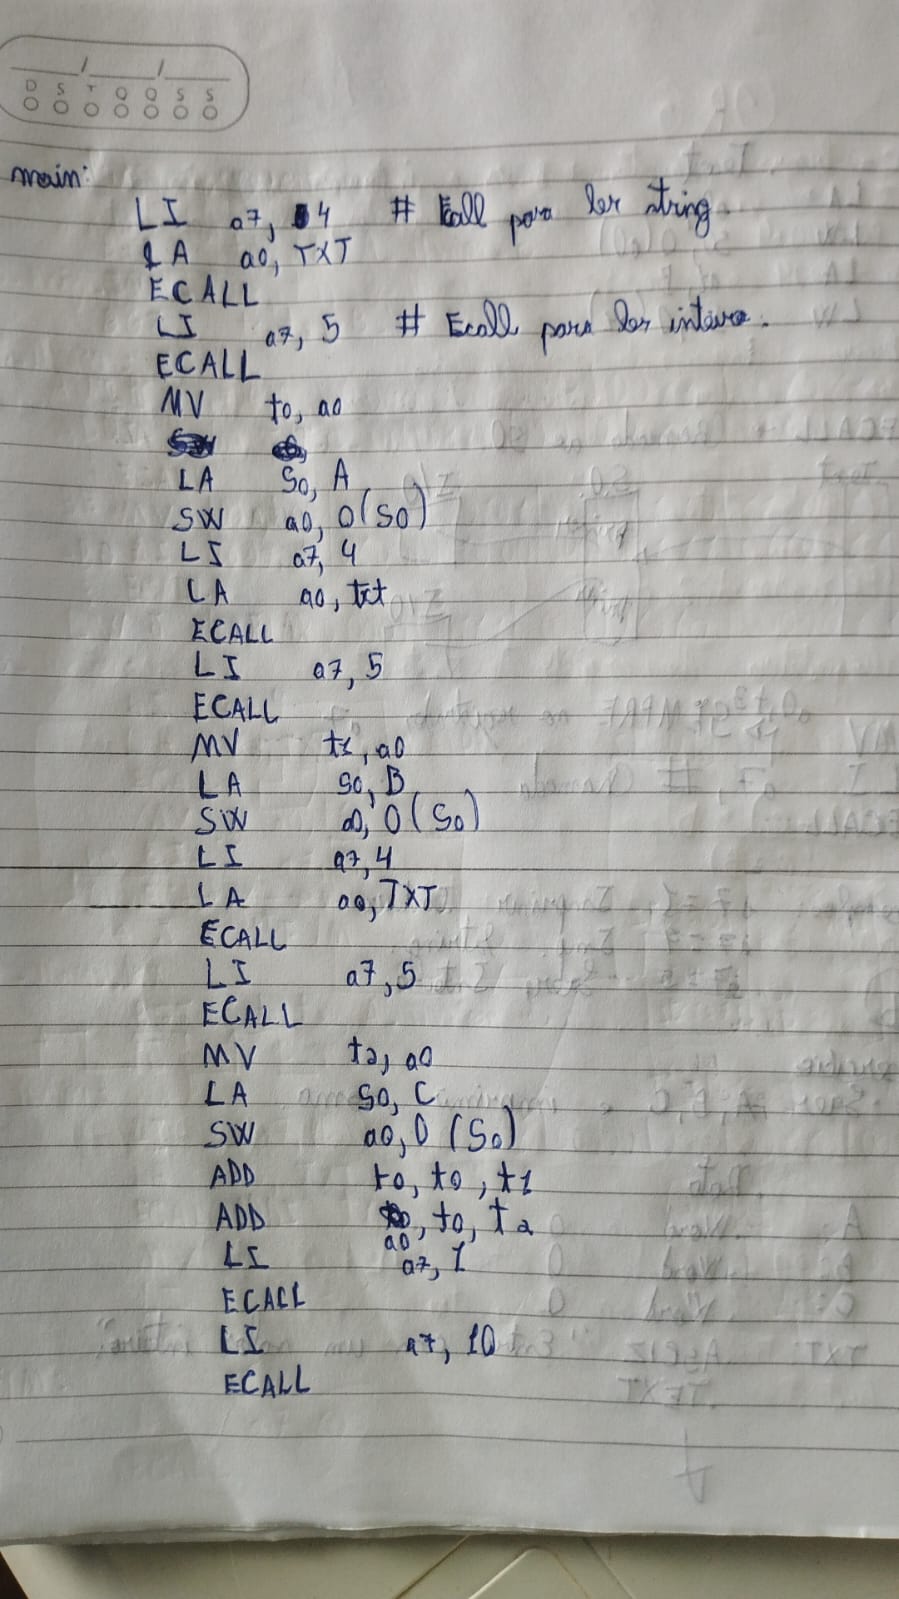 D S T Q Q S S
main:
LI a7, 4 # Ecall para ler string.
LA a0, TXT
ECALL
LI a7, 5 # Ecall para ler inteiro.
ECALL
MV t0, a0
LA S0, A
SW a0, 0(S0)
LI a7, 4
LA a0, txt
ECALL
LI a7, 5
ECALL
MV t1, a0
LA S0, B
SW a0, 0(S0)
LI a7, 4
LA a0, TXT
ECALL
LI a7, 5
ECALL
MV t2, a0
LA S0, C
SW a0, 0(S0)
ADD t0, t0, t1
ADD a0, t0, t2
LI a7, 1
ECALL
LI a7, 10
ECALL